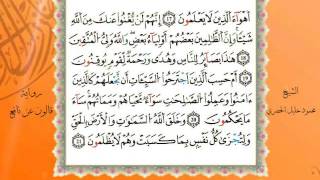 أَهْوَآءَ ٱلَّذِينَ لَا يَعْلَمُونَ ۝١٧ إِنَّهُمْ لَنْ يُّغْنُوا عَنكَ مِنَ ٱللَّهِ
شَيْـًٔا وَإِنَّ ٱلظَّٰلِمِينَ بَعْضُهُمْ أَوْلِيَآءُ بَعْضٍ وَٱللَّهُ وَلِيُّ ٱلْمُتَّقِينَ ۝١٨
هَٰذَا بَصَٰٓئِرُ لِلنَّاسِ وَهُدًى وَرَحْمَةٌ لِّقَوْمٍ يُوقِنُونَ ۝١٩
أَمْ حَسِبَ ٱلَّذِينَ ٱجْتَرَحُوا ٱلسَّيِّـَٔاتِ أَن نَّجْعَلَهُمْ كَٱلَّذِينَ
ءَامَنُوا وَعَمِلُوا ٱلصَّٰلِحَٰتِ سَوَآءٌ مَّحْيَاهُمْ وَمَمَاتُهُمْ سَآءَ
مَا يَحْكُمُونَ ۝٢٠ وَخَلَقَ ٱللَّهُ ٱلسَّمَٰوَٰتِ وَٱلْأَرْضَ بِٱلْحَقِّ
وَلِتُجْزَىٰ كُلُّ نَفْسٍۭ بِمَا كَسَبَتْ وَهُمْ لَا يُظْلَمُونَ ۝٢١
الشيخ
محمود خليل الحصري
رواية
قالون عن نافع